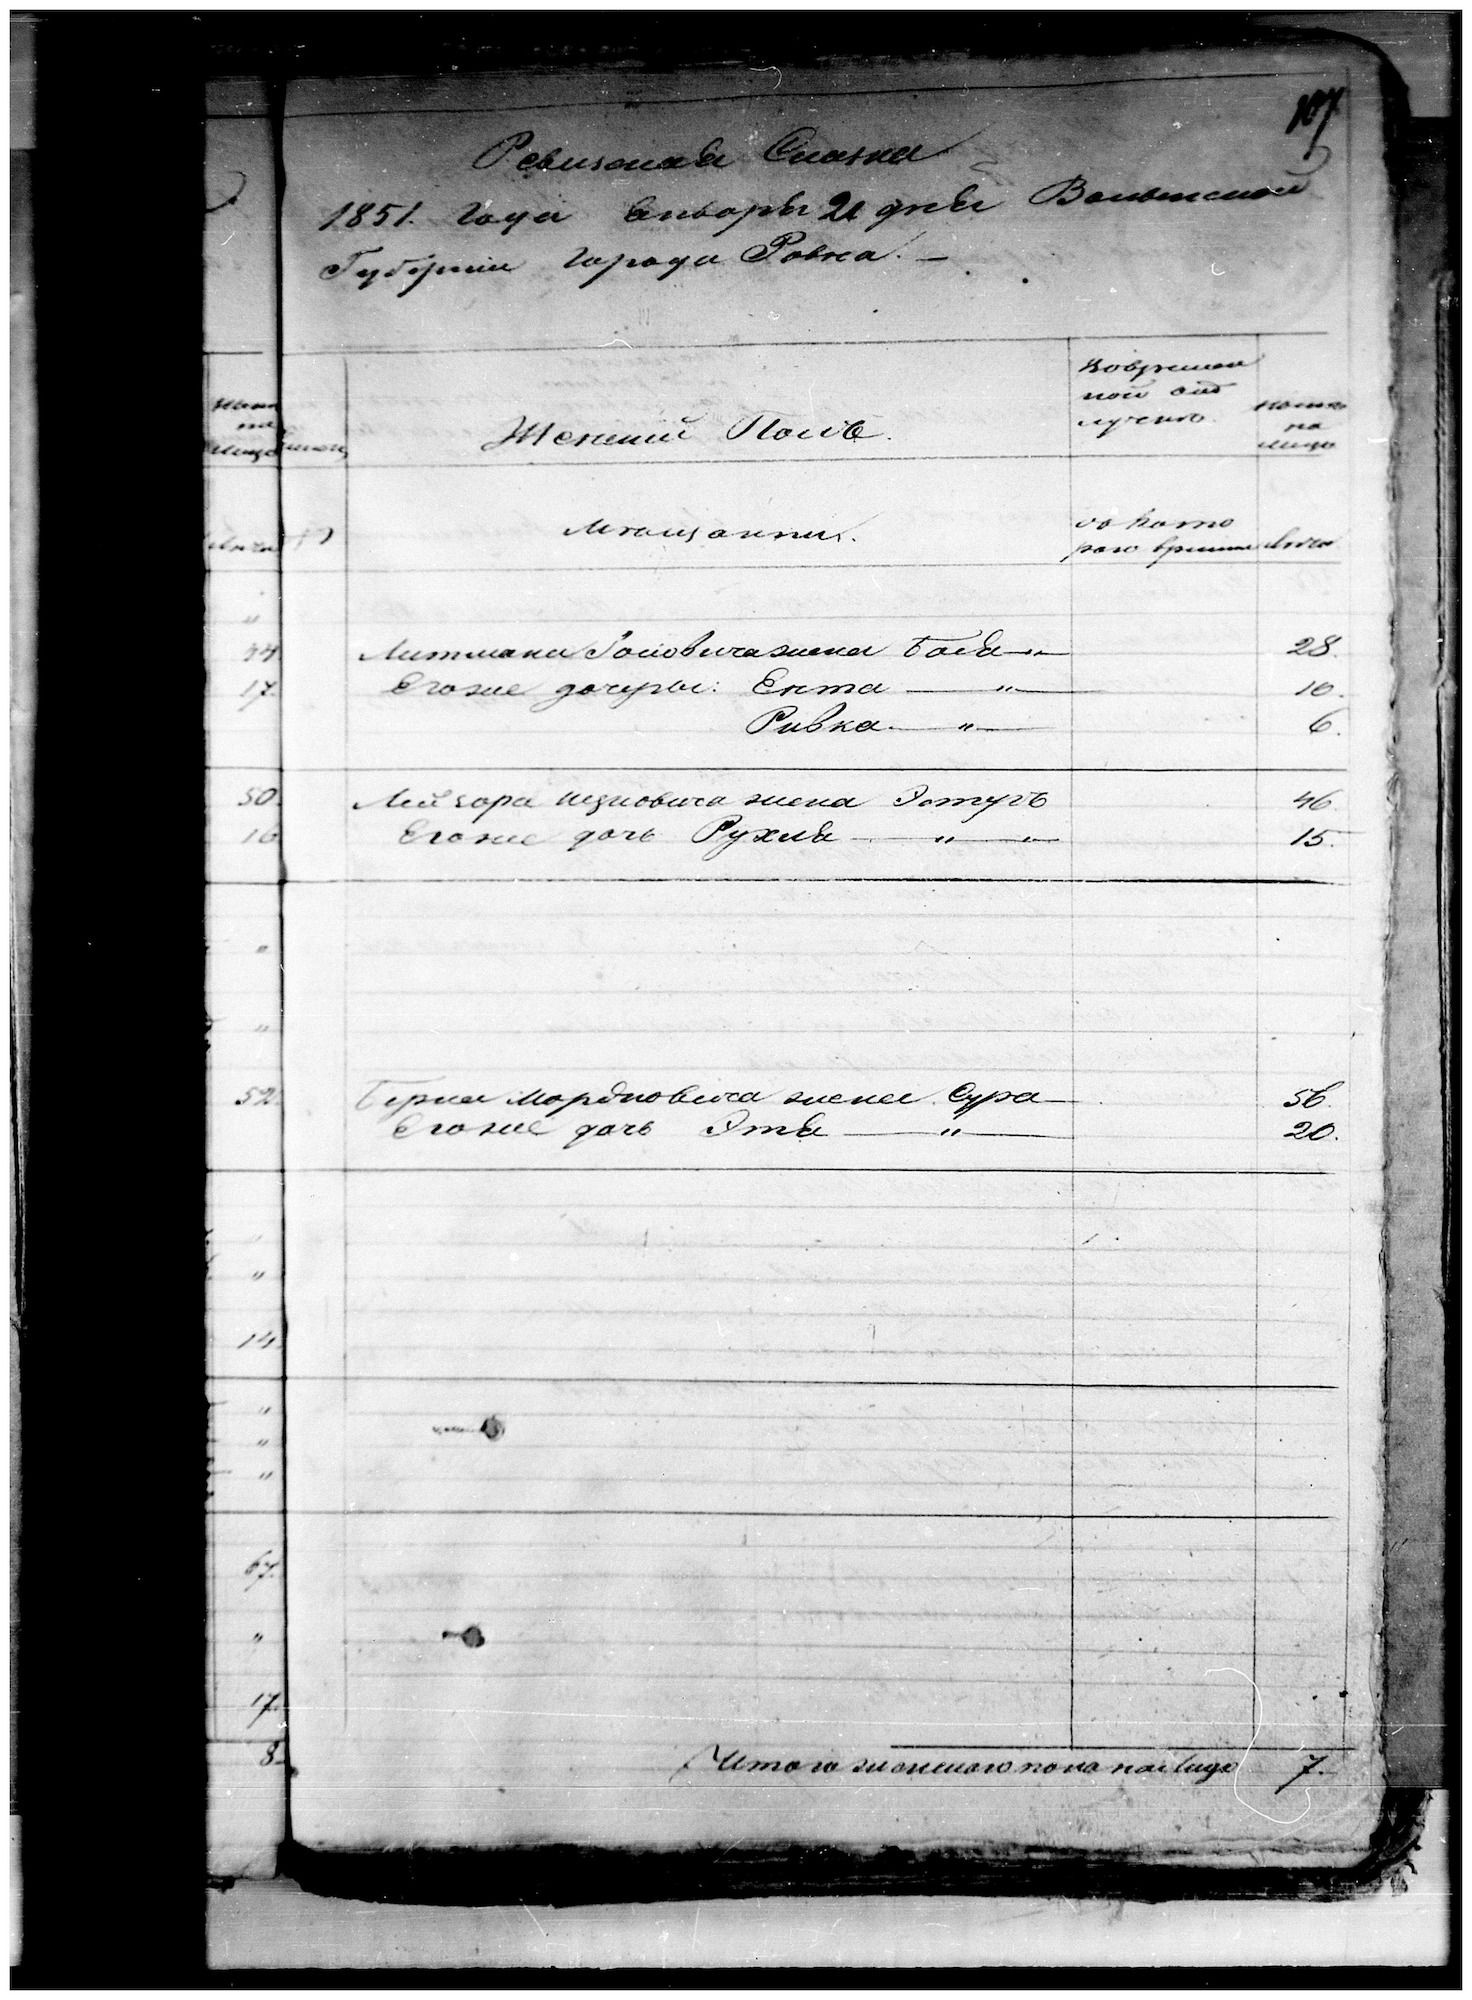 107
Ревизская Сказка
1851. года Января 21 дня Волынской
Губернии города Ровна. —
Женский Полъ.
Вовремен
ной отлучке
ныне
на
лицо
Мещанки.
съ кото
раго времени
лета
44
Литмана жена Бася — „ —
28.
17
Егоже дочери: Ента — „ —
10.
Ривка — „ —
6.
50.
Лейзора Ицковича жена Эстеръ
46.
16
Егоже дочь Рухля — „ —
15.
„
„
52.
Берка Мордковича жена Сура —
56.
Егоже дочь Этя — „ —
20.
„
14.
„
„
„
67.
„
17.
8.
Итого женского пола на лицо 7.